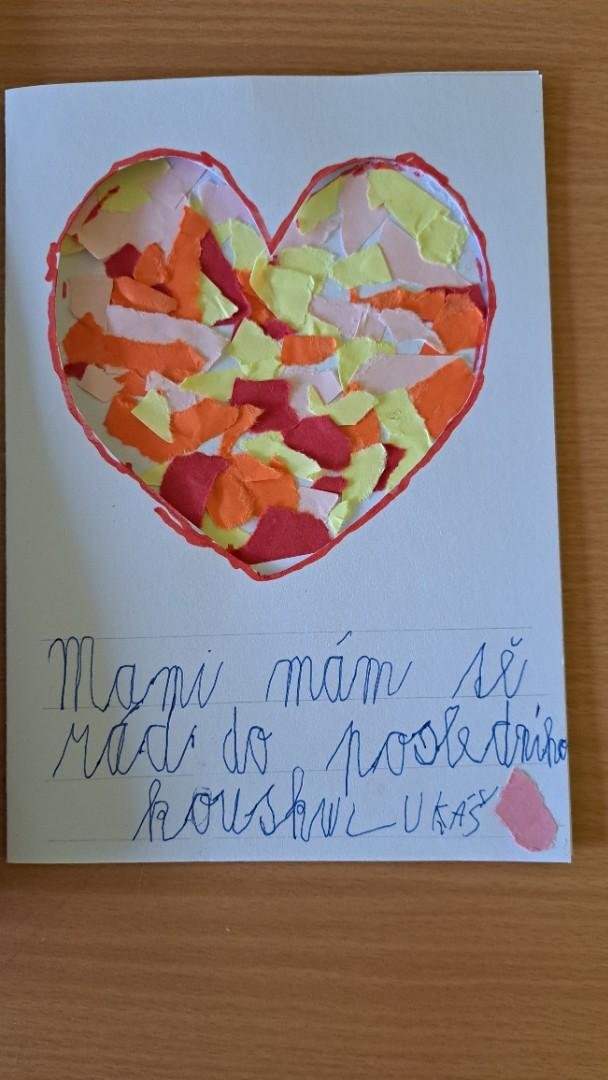 Mami mám sě
rád do posledního
kousku LUKÁŠ